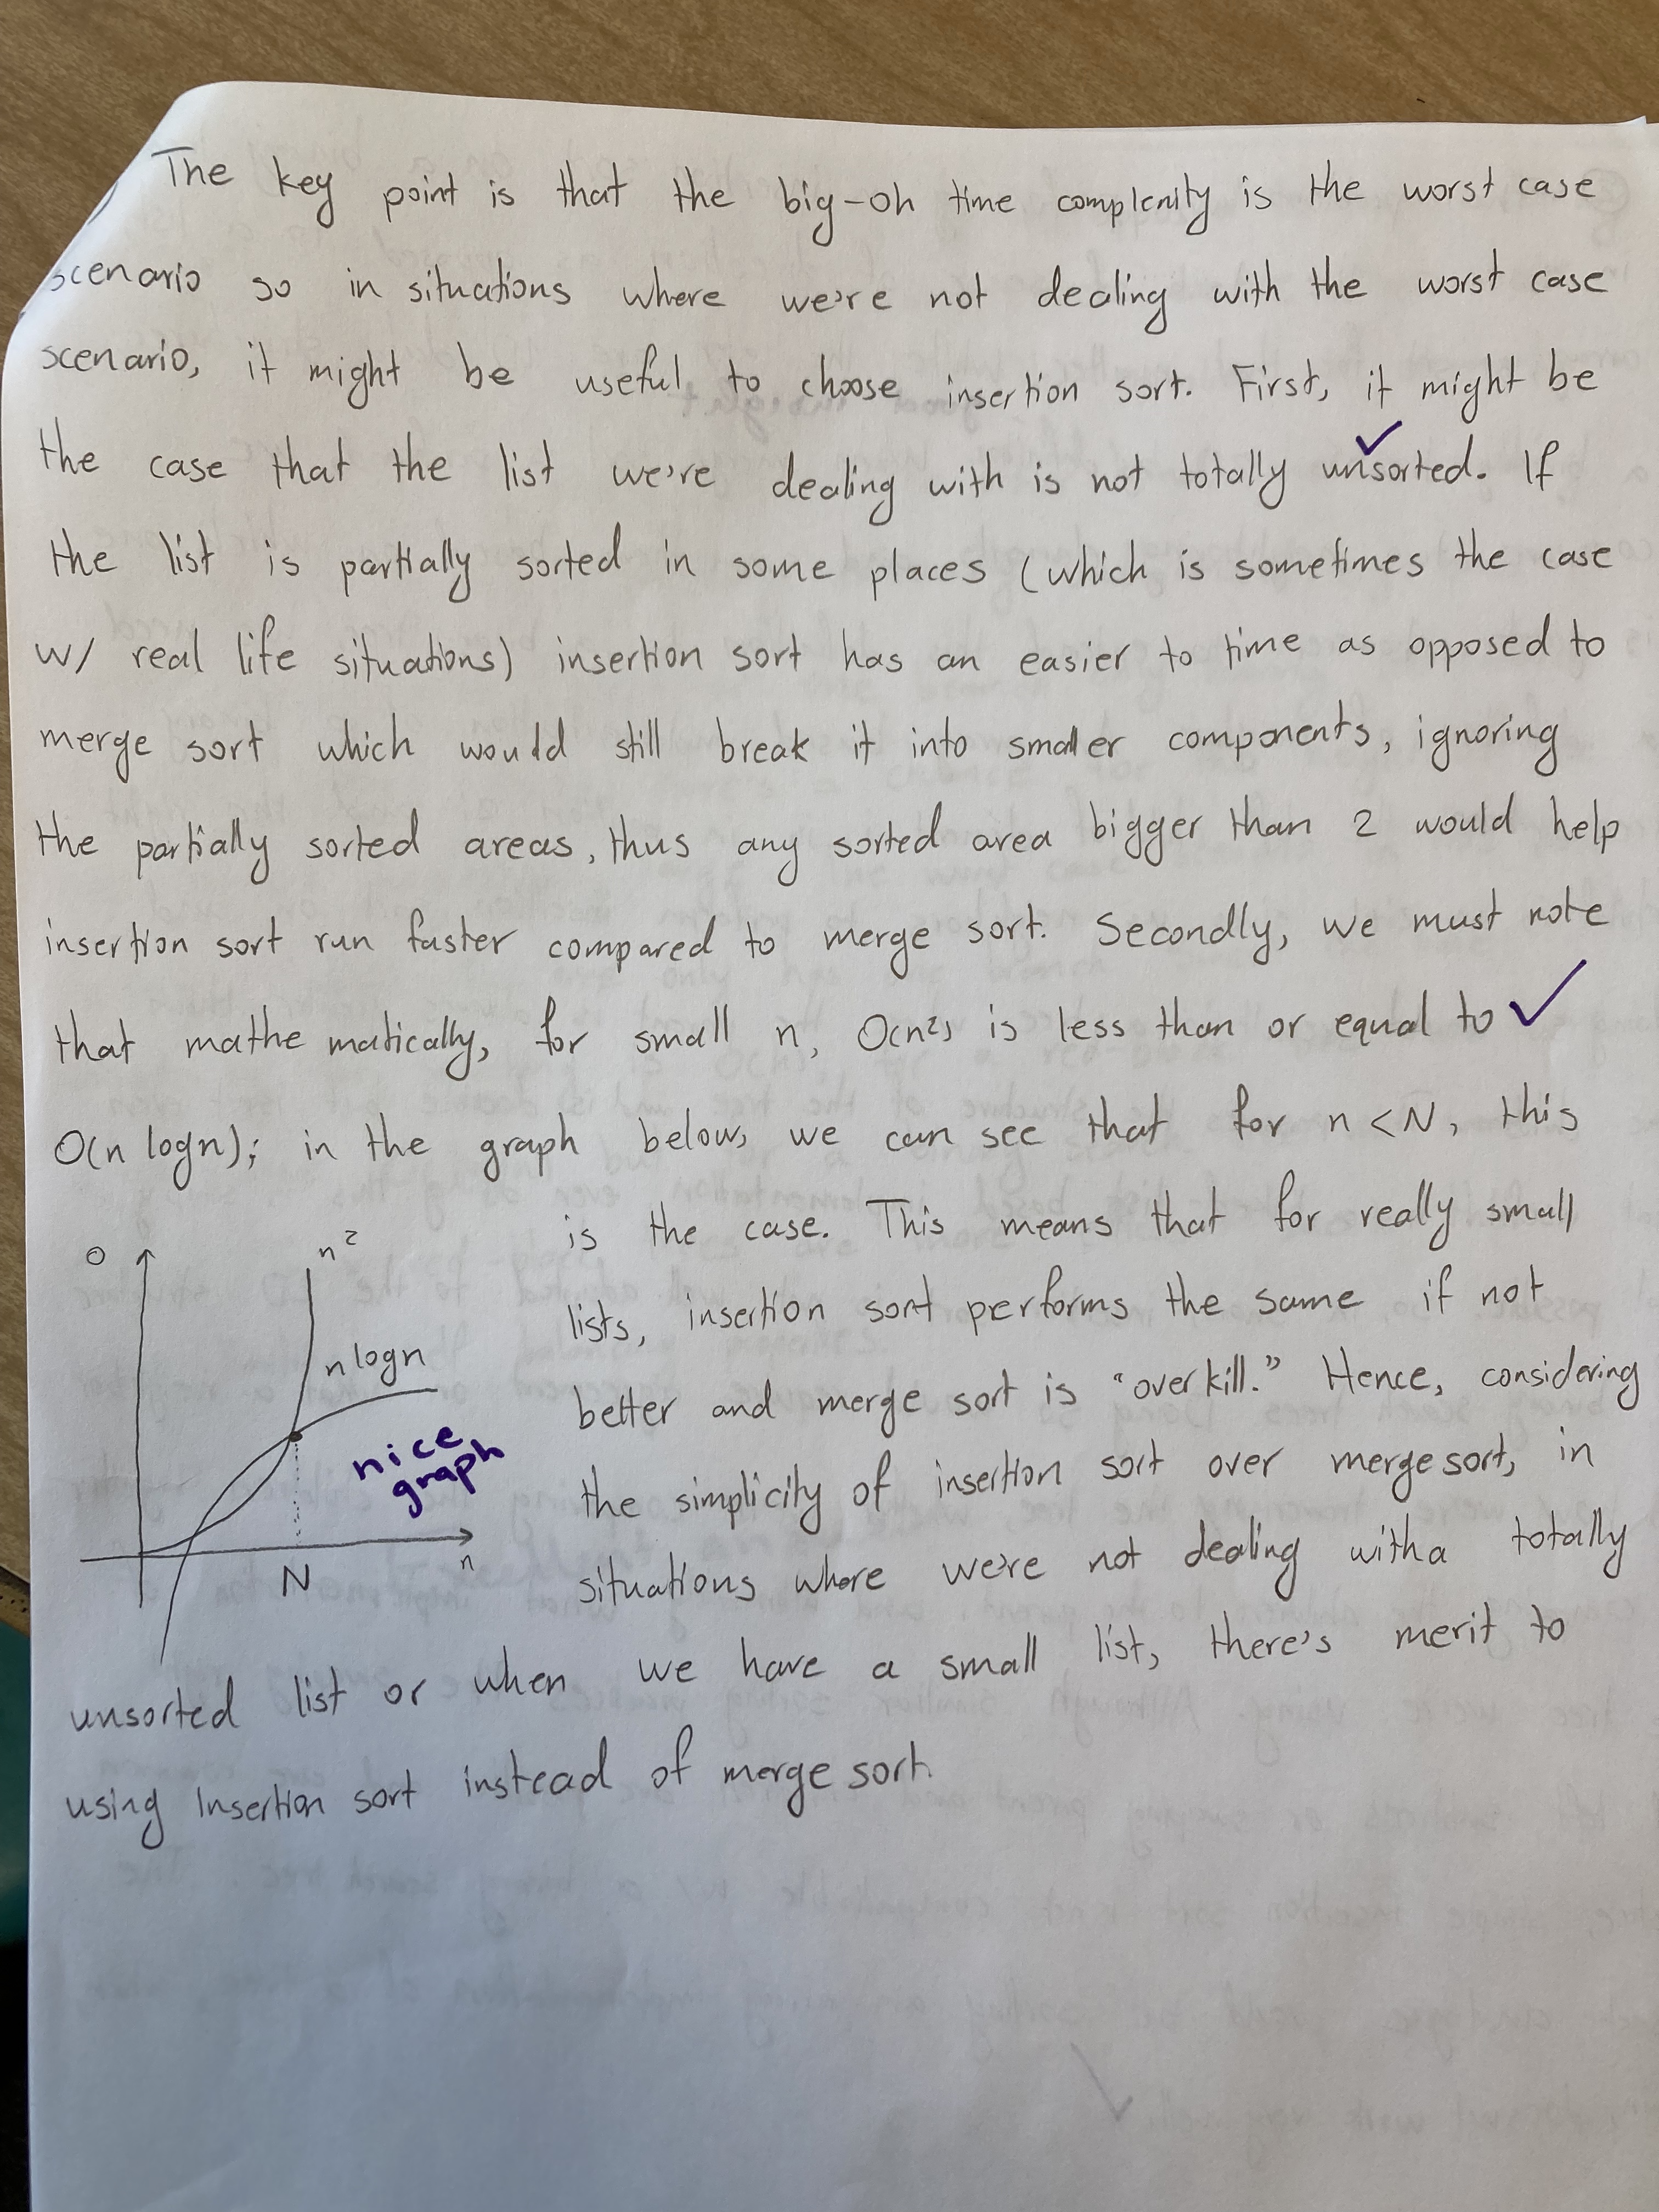 The key point is that the big-oh time complexity is the worst case
scenario so in situations where we're not dealing with the worst case
scenario, it might be useful to choose insertion sort. First, it might be
the case that the list we're dealing with is not totally unsorted. If
the list is partially sorted in some places (which is sometimes the case
w/ real life situations) insertion sort has an easier to time as opposed to
merge sort which would still break it into smaller components, ignoring
the partially sorted areas, thus any sorted area bigger than 2 would help
insertion sort run faster compared to merge sort. Secondly, we must note
that mathematically, for small n, O(n²) is less than or equal to
O(n logn); in the graph below, we can see that for n < N, this
is the case. This means that for really small
lists, insertion sort performs the same if not
better and merge sort is "overkill." Hence, considering
the simplicity of insertion sort over merge sort, in
situations where we're not dealing with a totally
unsorted list or when we have a small list, there's merit to
using Insertion sort instead of merge sort.
O
n²
n logn
nice
graph
N
n